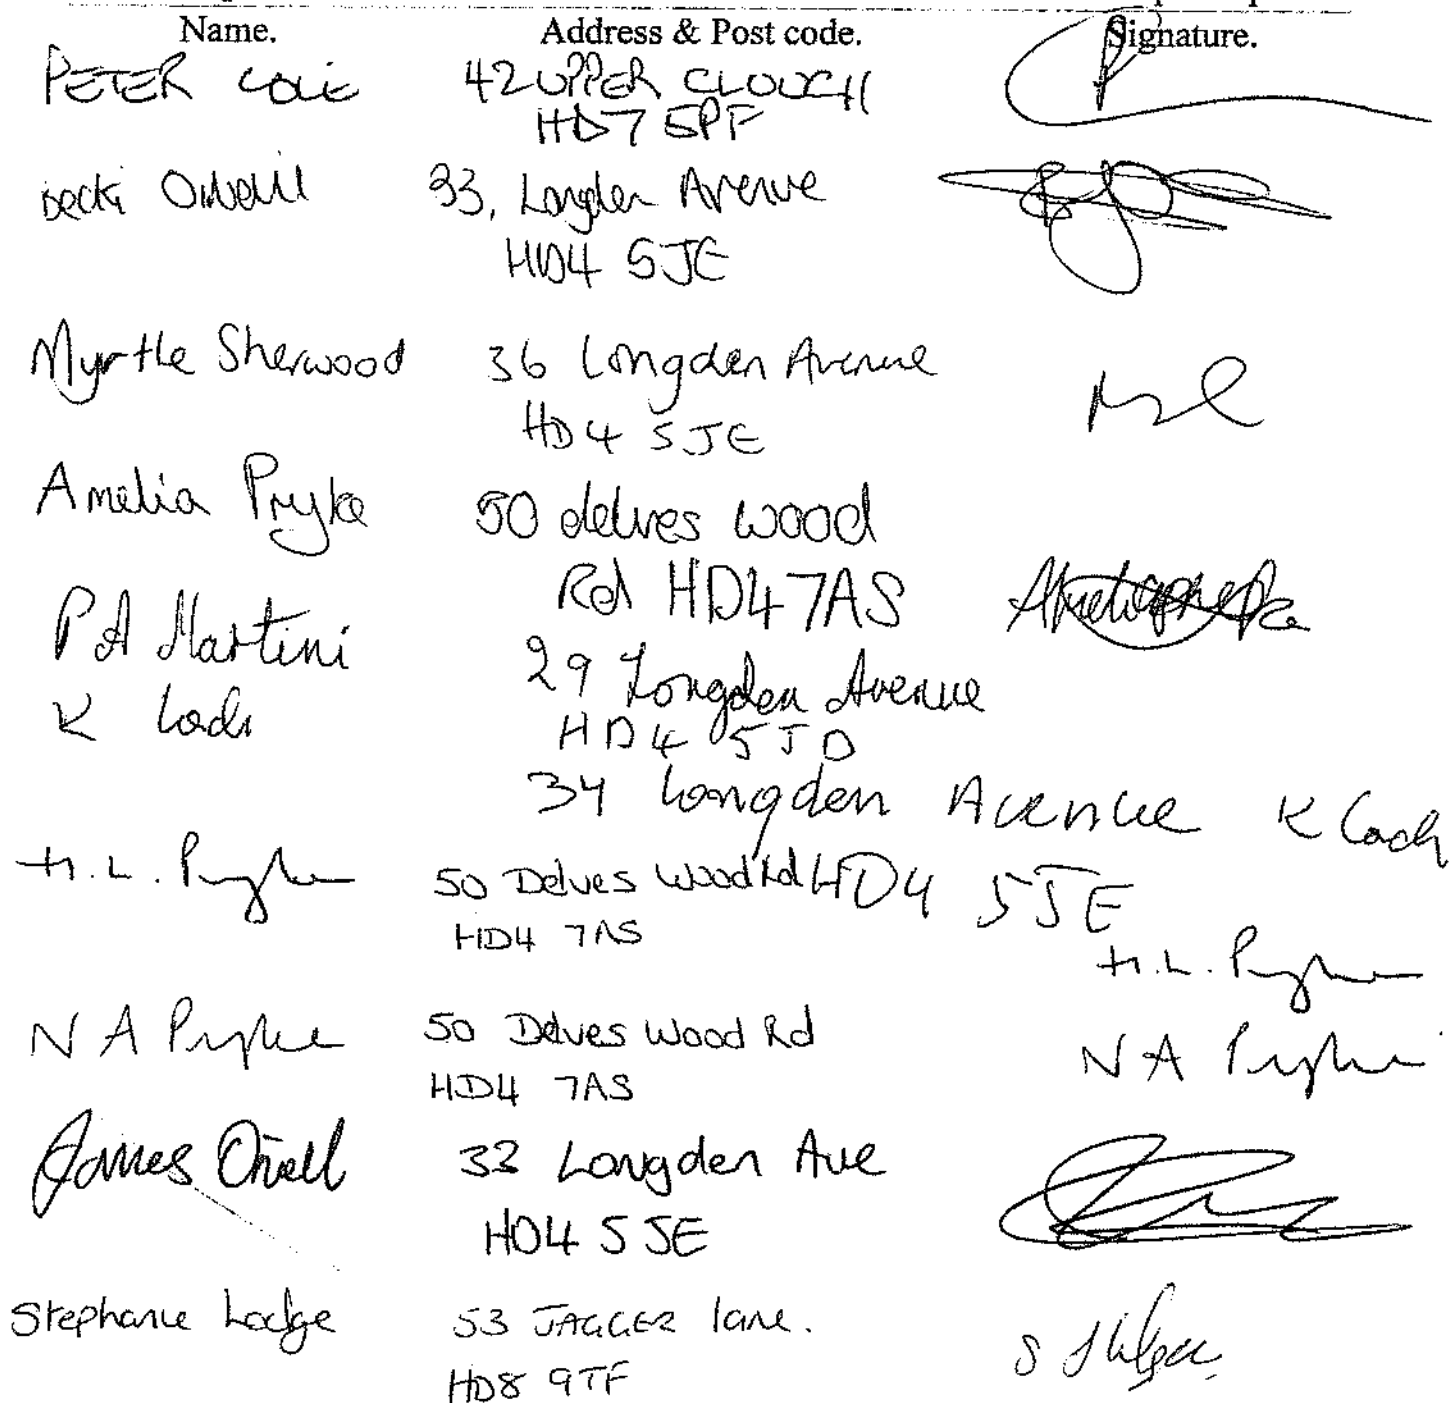 Name. Address & Post code. Signature.
PETER COLE 42 UPPER CLOUGH
HD7 5PF
Becki Oneill 33, Longden Avenue
HD4 5JE
Myrtle Sherwood 36 Longden Avenue
HD4 5JE
Amelia Pryke 50 delves wood
Rd HD4 7AS
P A Martini 29 Longden Avenue
HD4 5JD
K 34 Longden Avenue K
HD4 5JE
H. L. Pryke 50 Delves Wood Rd
HD4 7AS H. L. Pryke
N A Pryke 50 Delves Wood Rd N A Pryke
HD4 7AS
James Oneill 33 Longden Ave
HD4 5JE
Stephanie Lodge 53 JAGGER lane.
HD8 9TF S